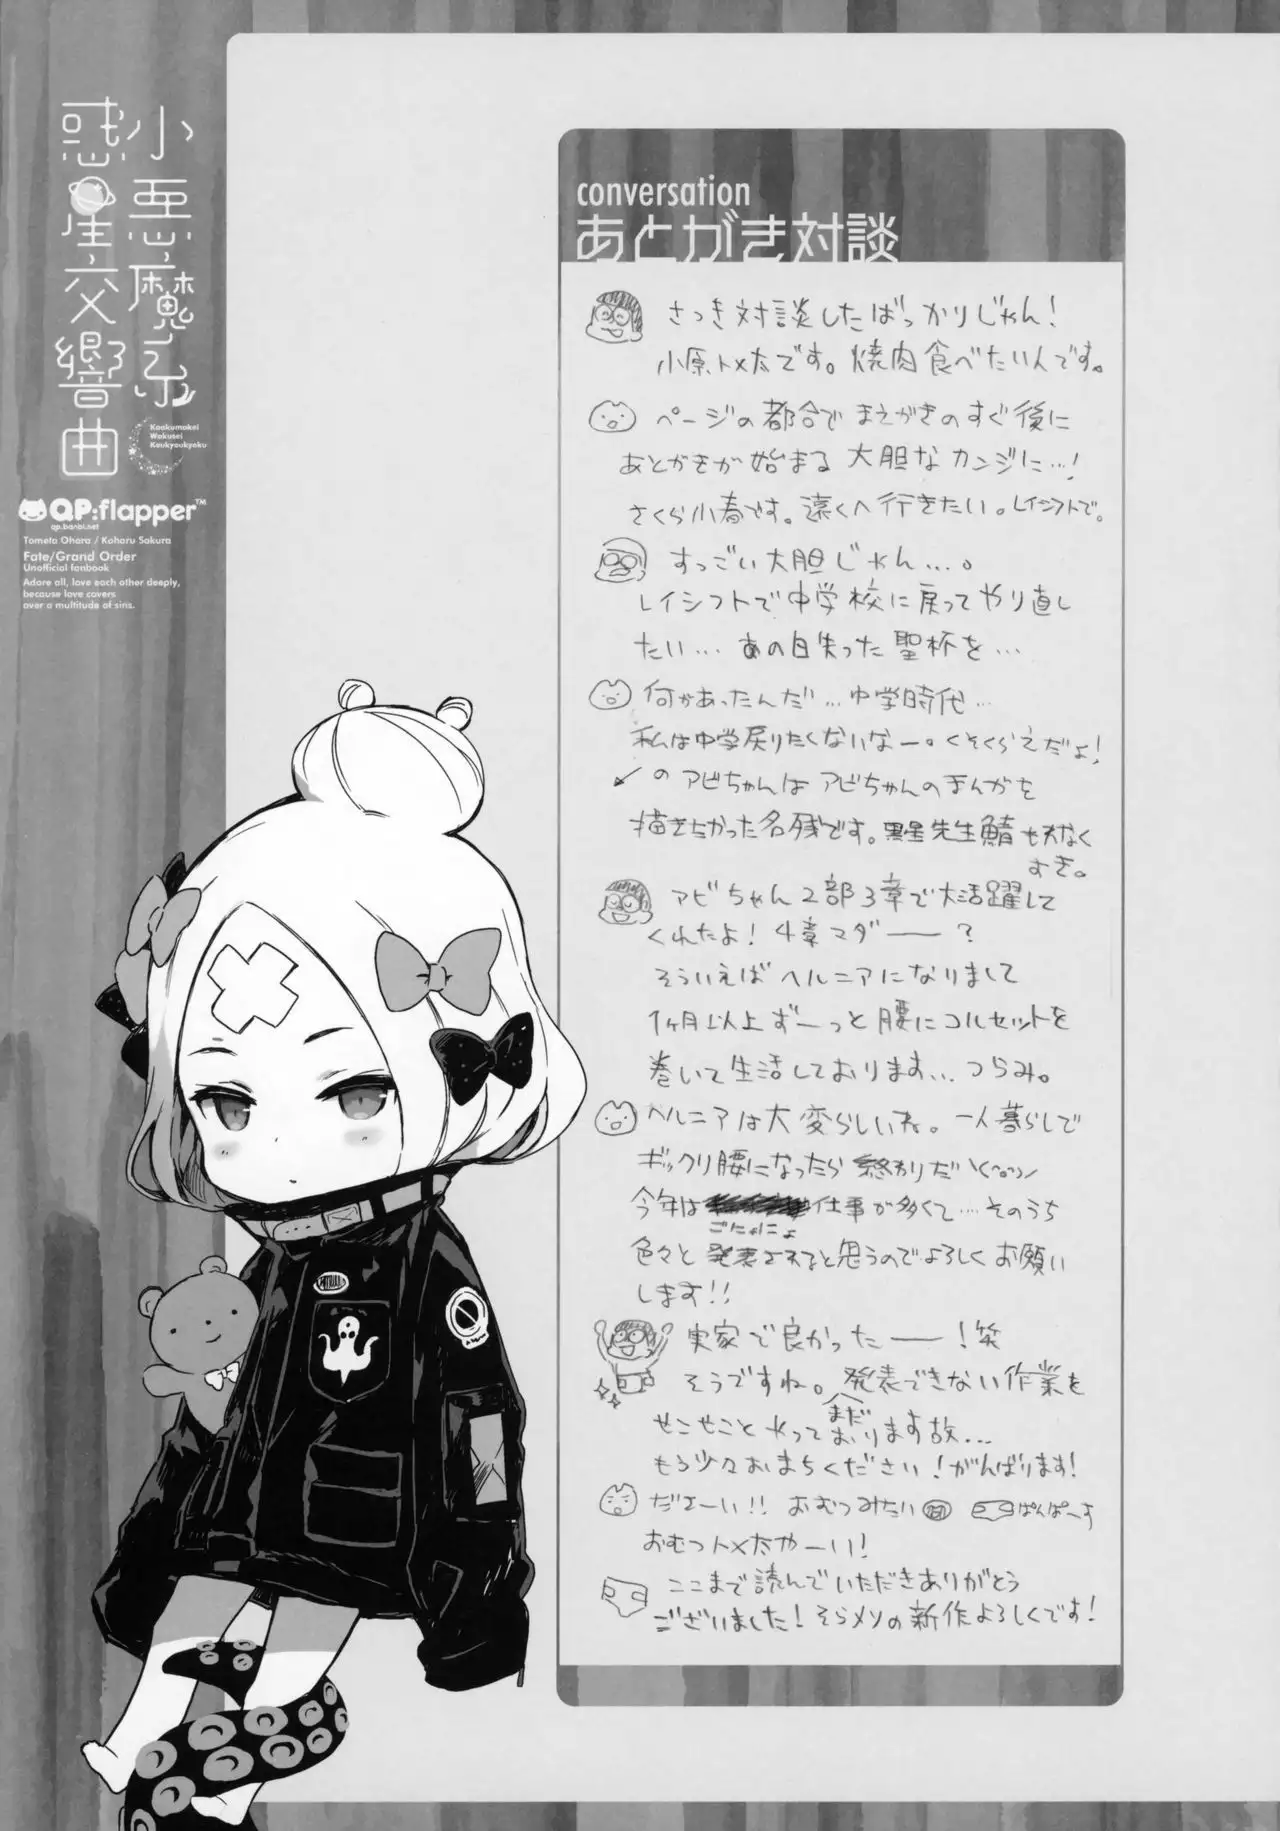 小悪魔系
惑星交響曲
Koakumakei
Wakusei
Koukyoukyoku
QP:flapper™
qp.banbi.net
Tometa Ohara / Koharu Sakura
Fate/Grand Order
Unofficial fanbook
Adore all, love each other deeply,
because love covers
over a multitude of sins.
conversation
あとがき対談
さっき対談したばっかりじゃん!
小原トメ太です。焼肉食べたいんです。
ページの都合でまえがきのすぐ後に
あとがきが始まる大胆なカンジに…!
さくら小春です。遠くへ行きたい。レイシフトで。
すっごい大胆じゃん…。
レイシフトで中学校に戻ってやり直し
たい…あの日失った聖杯を…
何があったんだ…中学時代…
私は中学戻りたくないなー。くそくらえだよ!
↙のアビちゃんはアビちゃんのまんがを
描きたかった名残です。黒星先生鯖も切なく
すき。
アビちゃん2部3章で大活躍して
くれたよ!4章マダー?
そういえばヘルニアになりまして
1ヶ月以上ずーっと腰にコルセットを
巻いて生活しております…つらみ。
ヘルニアは大変らしいね。一人暮らしで
ギックリ腰になったら終わりだ
今年は仕事が多くて…そのうち
ごにょにょ
色々と発表されると思うのでよろしくお願い
します!!
実家で良かったー!笑
そうですね。発表できない作業を
せこせことやってまだおります故…
もう少々おまちください!がんばります!
だよーい!!おむつみたい ぱんぱーす
おむつトメ太やーい!
ここまで読んでいただきありがとう
ございました!そらメソの新作よろしくです!